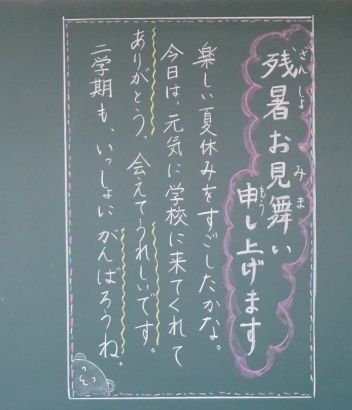 残暑お見舞い
ざんしょ
みま
申し上げます
もう
楽しい夏休みをすごしたかな。
今日は、元気に学校に来てくれて
ありがとう。会えてうれしいです。
二学期も、いっしょにがんばろうね。